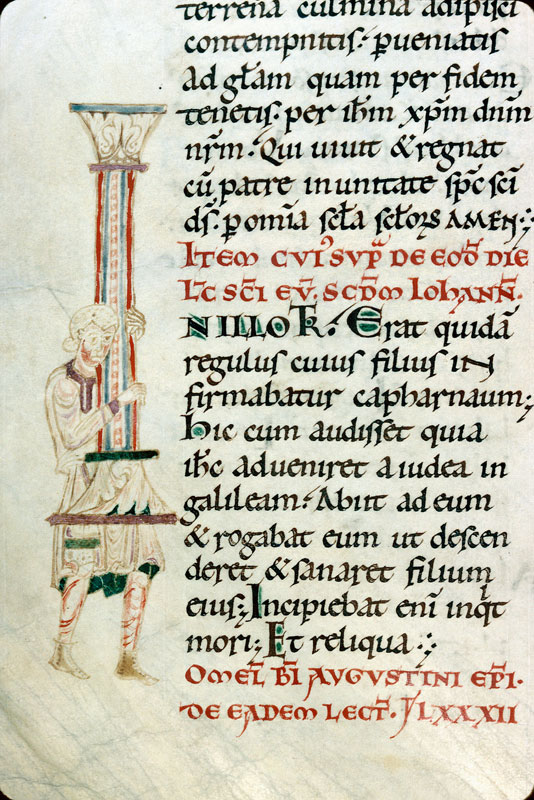 terrena culmina adipisci
contempnitis. p̄ueniatis
ad gl̄am quam per fidem
tenetis. per ih̄m xp̄m dn̄m
nr̄m. Qui uiuit & regnat
cū patre in unitate sp̄c sc̄i
d̄s. p̄ om̄ia sc̄la sc̄lorꝝ AMEN;
ITEM CVI' SVPͣ DE EOD̄ DIE
LC̄ SC̄I EV̄. SCD̄M IOHANN̄.
N ILLO T̄. Erat quidā
regulus cuius filius in
firmabatur capharnaum;
hic cum audisset quia
ih̄c adueniret a iudea in
galileam. Abiit ad eum
& rogabat eum ut descen
deret & sanaret filium
eius; Incipiebat eni̅ inq̇t
mori; Et reliqua.
OMEL̄ BĪ AVGVSTINI EP̄I.
DE EADEM LECT̄. LXXXII